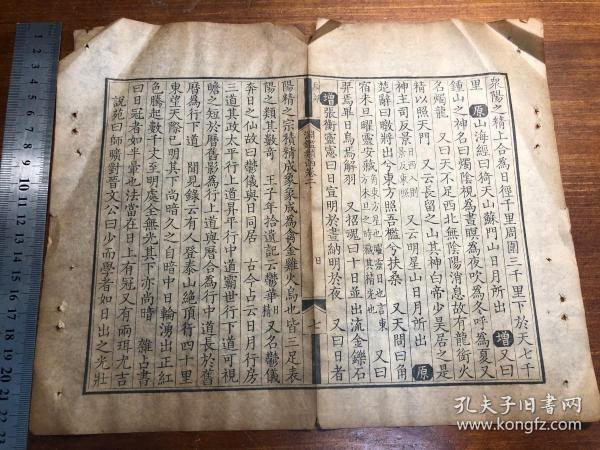 衆陽之精上合為日徑千里周圍三千里下於天七千
里 原 山海經曰猗天山蘇門山日月所出 增 又曰
鍾山之神名曰燭陰視為晝瞑為夜吹為冬呼為夏又
名燭龍 又曰天不足西北無陰陽消息故有龍銜火
精以照天門 又云長留之山其神白帝少昊居之是
神主司反景 又云明星山日月所出 原
楚辭曰暾將出兮東方照吾檻兮扶桑 又天問曰角
宿未旦曜靈安藏
羿焉畢日烏焉解羽 又招魂曰十日並出流金鑠石
增 張衡靈憲曰日宣明於晝納明於夜 又曰日者
淵鑑類函卷二 日 七
陽精之宗積精成象象成為禽金雞火烏也皆三足表
陽之類其數奇 王子年拾遺記云鬱華 又名鬱儀
奔日之仙故曰鬱儀與日同居 古今占云日月行房
三道其政太平行上道昇平行中道霸世行下道可視
瞻之短於曆舊影為行上道與曆合為行中道長於舊
曆為行下道 聞見錄云有人登泰山絶頂行四十里
東望天際已明其下尚暗久之自暗中日輪湧出正紅
色騰起數千丈至明處全無光其下亦尚暗 雜占書
曰日冠者如半暈也法當在日上有冠又有兩珥尤吉
說苑曰師曠對晉文公曰少而學者如日出之光壯
孔夫子旧书网
www.kongfz.com